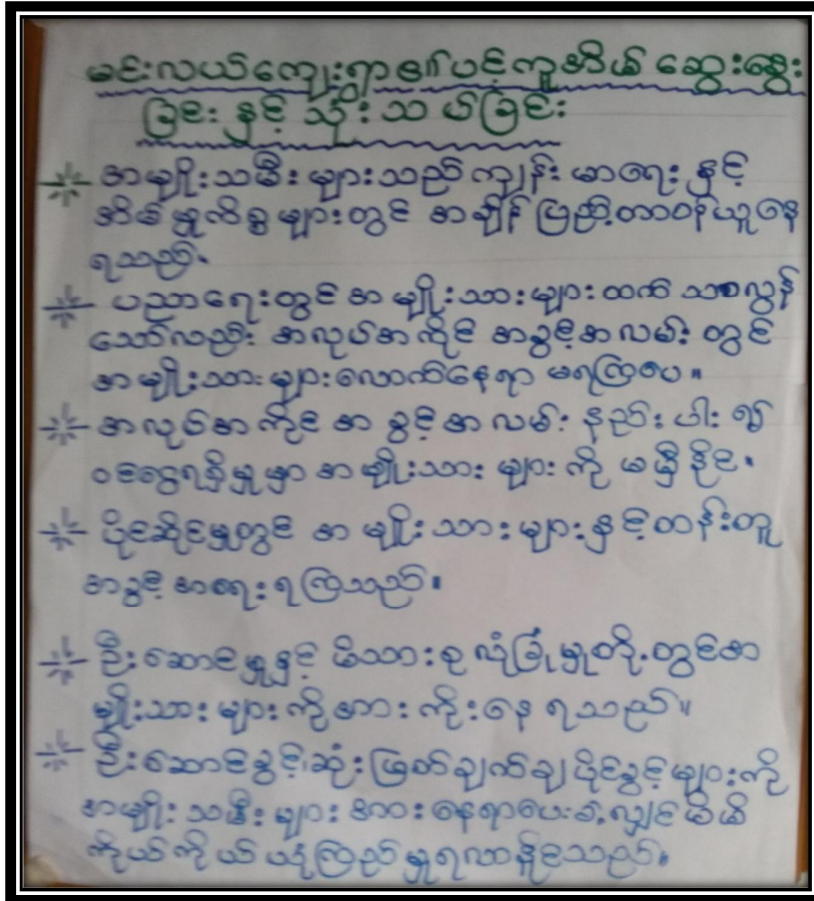 မင်းလယ်ကျေးရွာ၏ပင့်ကူအိမ် ဆွေးနွေး
ခြင်း နှင့် သုံးသပ်ခြင်း
အမျိုးသမီး များသည် ကျန်းမာရေး နှင့်
အိမ်မှုကိစ္စ များတွင် အချိန် ပြည့်တာဝန်ယူနေ
ရသည်။
ပညာရေးတွင် အမျိုးသားများထက် သာလွန်
သော်လည်း အလုပ်အကိုင် အခွင့်အလမ်း တွင်
အမျိုးသားများလောက်နေရာ မရကြပေ။
အလုပ်အကိုင် အခွင့်အလမ်း နည်းပါး၍
ဝင်ငွေရရှိမှုမှာ အမျိုးသား များ ကို မမှီနိုင်။
ပိုင်ဆိုင်မှုတွင် အမျိုးသားများနှင့်တန်းတူ
အခွင့် အရေး ရကြသည်။
ဦးဆောင်မှုနှင့် မိသားစု လုံခြုံမှုတို့တွင်အ
မျိုးသား များ ကို အားကိုးနေ ရသည်။
ဦးဆောင်ခွင့်၊ဆုံးဖြတ်ချက်ချ ပိုင်ခွင့်များကို
အမျိုးသမီး များ အား နေရာပေးမှ
ကိုယ်ကိုယ် ယုံကြည်မှုရလာနိုင်သည်။